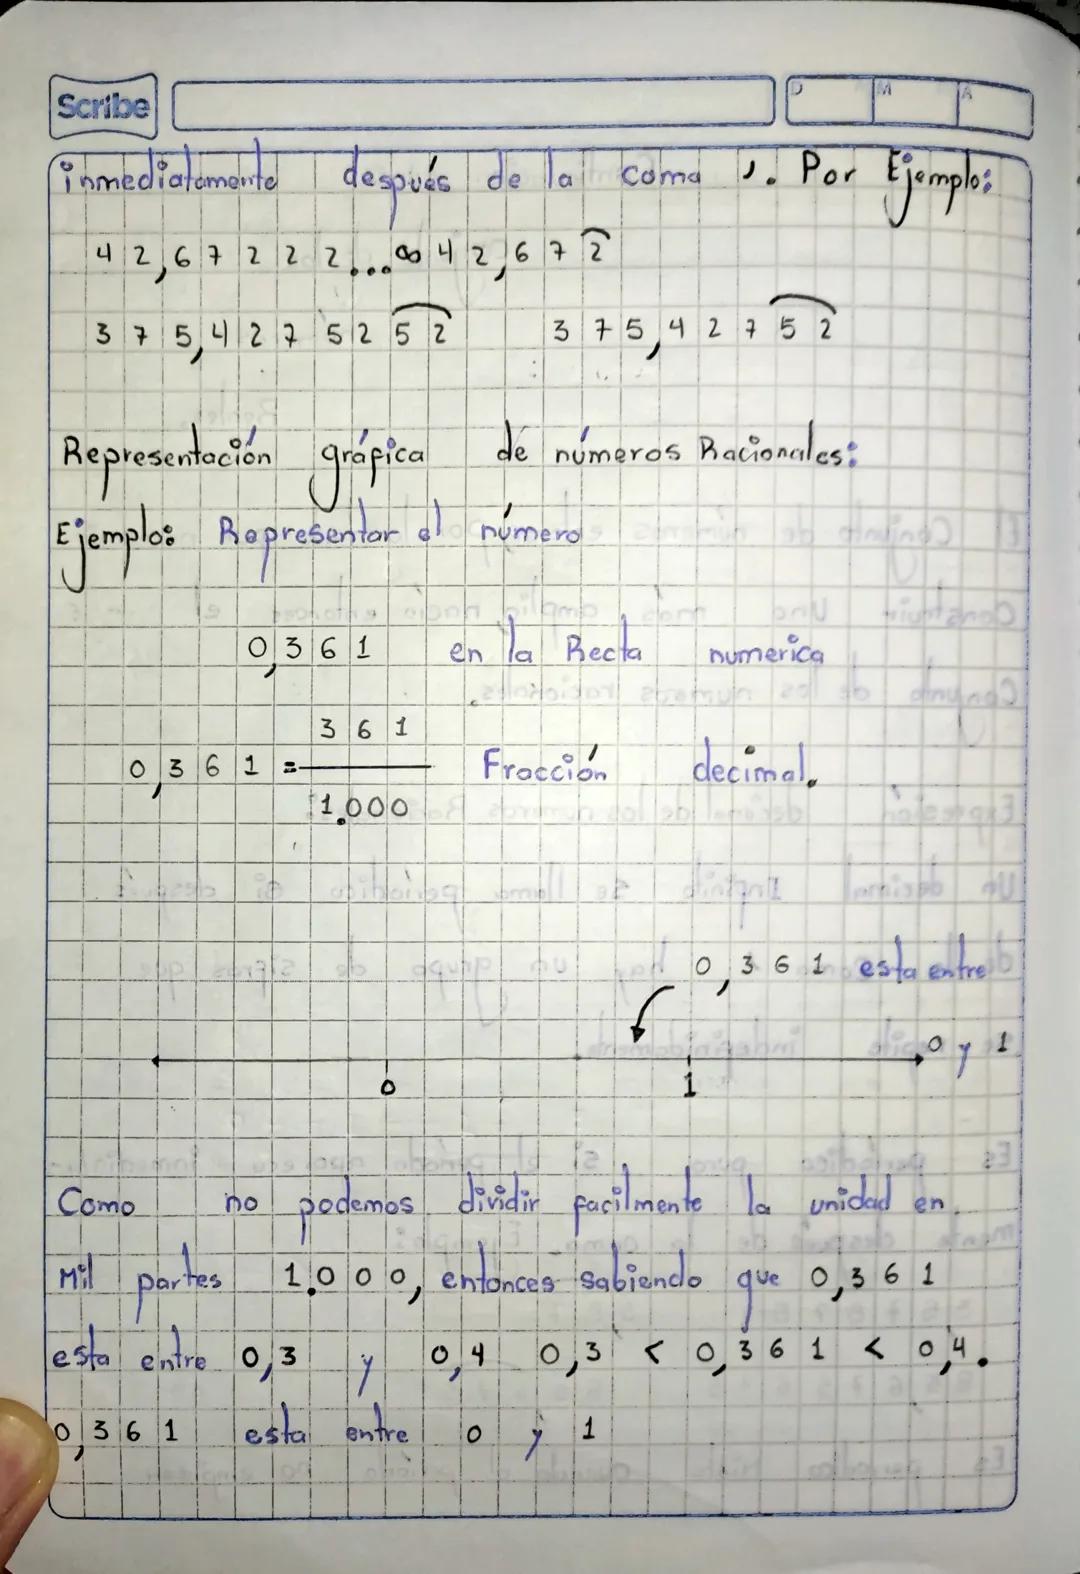 Scribe
D M A
inmediatamente después de la coma , . Por Ejemplo:
42,67222...∞ 42,672̂
375,4275252 375,42752
Representación gráfica de números Racionales:
Ejemplo: Representar el número
0,361 en la Recta numerica
361
0,361 = Fracción decimal.
1.000
0,361 esta entre
0 y 1
0 1
Como no podemos dividir facilmente la unidad en
Mil partes 1.000, entonces sabiendo que 0,361
esta entre 0,3 y 0,4 0,3 < 0,361 < 0,4.
0,361 esta entre 0 y 1